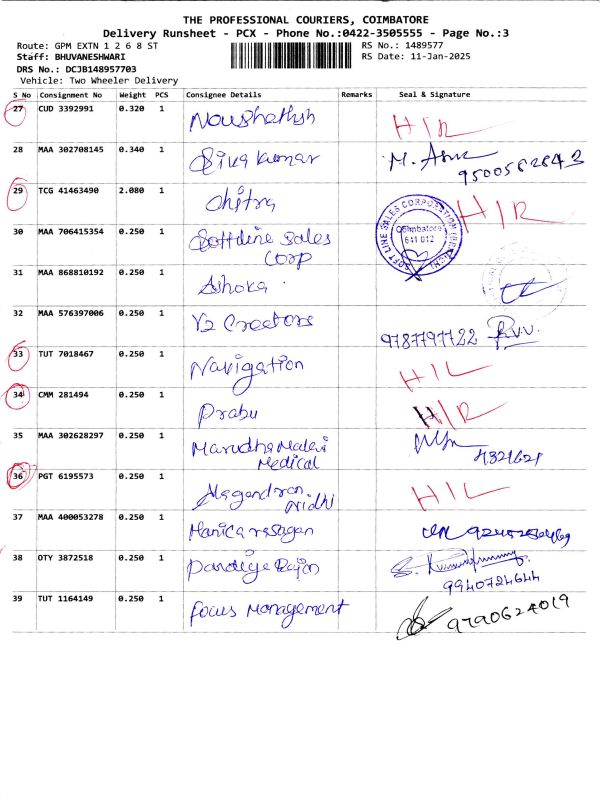 THE PROFESSIONAL COURIERS, COIMBATORE
Delivery Runsheet - PCX - Phone No.:0422-3505555 - Page No.:3
Route: GPM EXTN 1 2 6 8 ST RS No.: 1489577
Staff: BHUVANESHWARI RS Date: 11-Jan-2025
DRS No.: DCJB148957703
Vehicle: Two Wheeler Delivery
S No Consignment No Weight PCS Consignee Details Remarks Seal & Signature
27 CUD 3392991 0.320 1
28 MAA 302708145 0.340 1 Siva kumar 9500582843
29 TCG 41463490 2.080 1 Chitra
30 MAA 706415354 0.250 1 Softline Sales
Corp
SOFT LINE SALES CORPORATION
Coimbatore
641 012
31 MAA 868810192 0.250 1 Ashoka
32 MAA 576397006 0.250 1 V2 Creators 9787797722 R.V.V.
33 TUT 7018467 0.250 1 Navigation H/L
34 CMM 281494 0.250 1 Prabu
35 MAA 302628297 0.250 1 Marudha Malai
Medical
36 PGT 6195573 0.250 1 H/L
37 MAA 400053278 0.250 1
38 OTY 3872518 0.250 1 9940724644
39 TUT 1164149 0.250 1 focus Management 9790624019